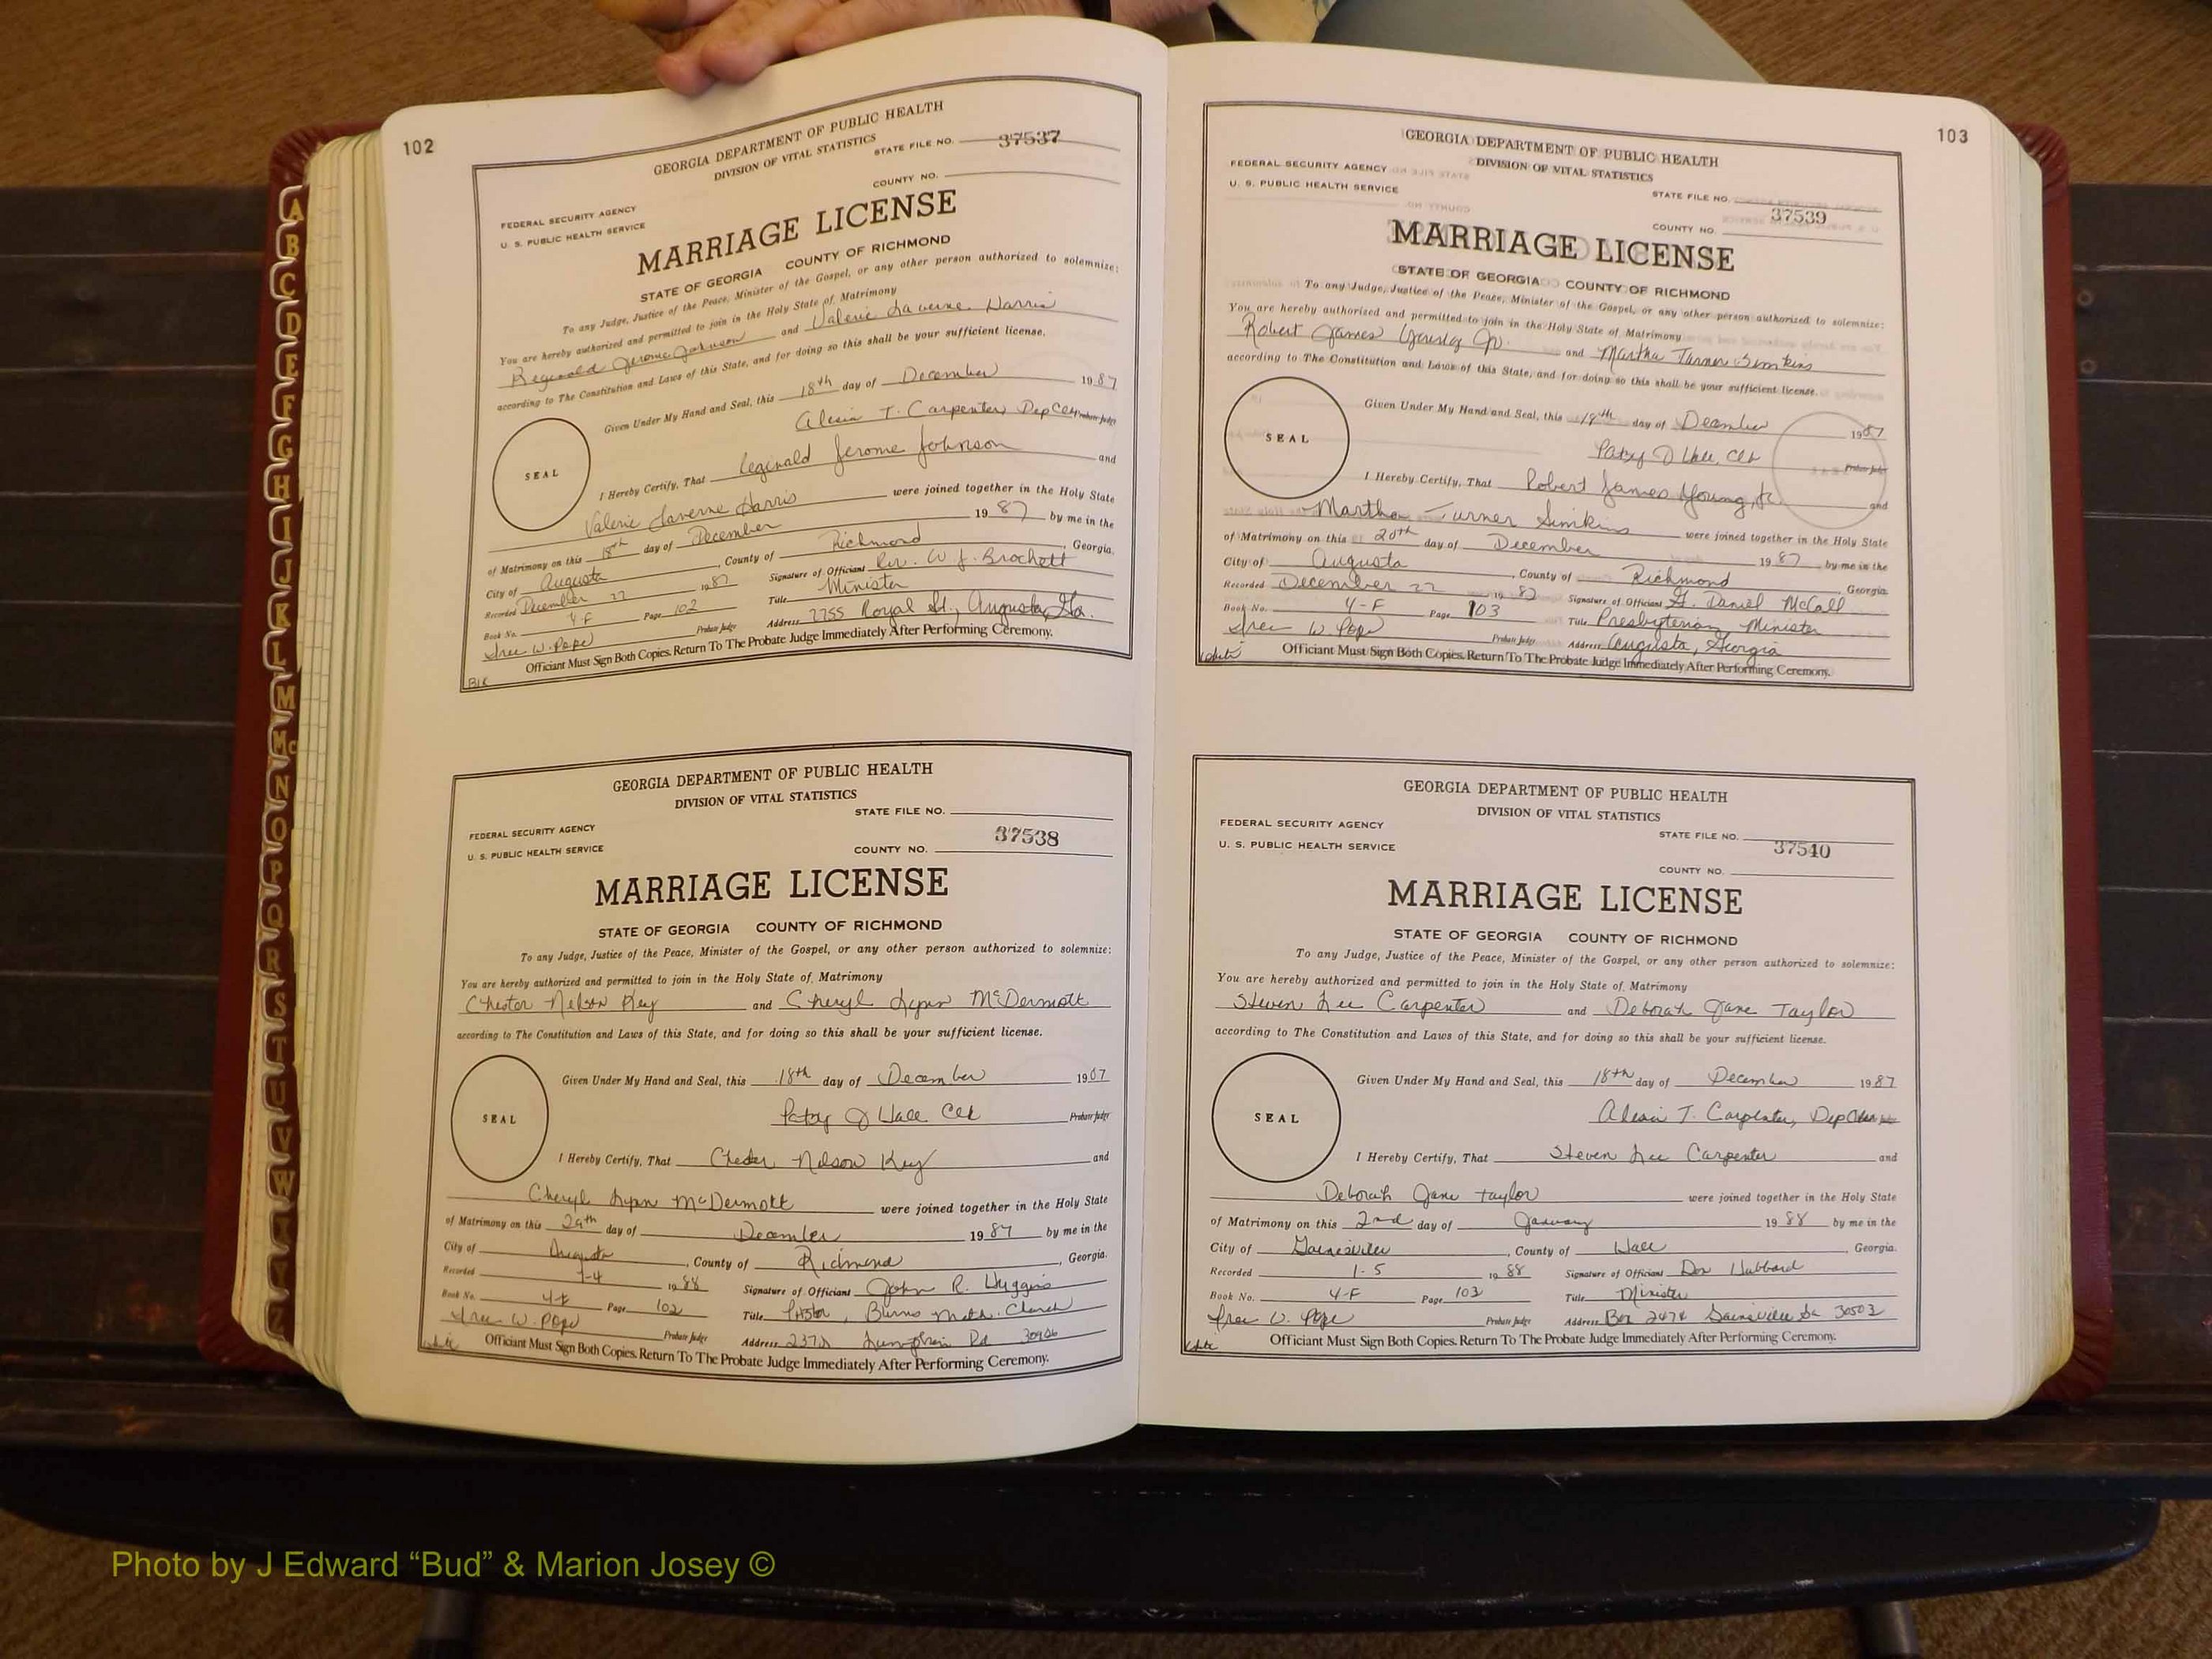 102
GEORGIA DEPARTMENT OF PUBLIC HEALTH
DIVISION OF VITAL STATISTICS
STATE FILE NO. 37537
COUNTY NO.
FEDERAL SECURITY AGENCY
U. S. PUBLIC HEALTH SERVICE
MARRIAGE LICENSE
STATE OF GEORGIA COUNTY OF RICHMOND
To any Judge, Justice of the Peace, Minister of the Gospel, or any other person authorized to solemnize:
You are hereby authorized and permitted to join in the Holy State of Matrimony
Reginald Jerome Johnson and Valerie Laverne Harris
according to The Constitution and Laws of this State, and for doing so this shall be your sufficient license.
Given Under My Hand and Seal, this 18th day of December 1987
Alesia T. Carpenter Dep Clk Probate Judge
SEAL
I Hereby Certify, That Reginald Jerome Johnson and
Valerie Laverne Harris were joined together in the Holy State
of Matrimony on this 18th day of December 1987 by me in the
City of Augusta, County of Richmond, Georgia.
Recorded December 22 1987 Signature of Officiant Rev. W. J. Brockett
Book No. 4-F Page 102 Title Minister
W. Pope Probate Judge Address 2755 Royal St., Augusta, Ga.
Officiant Must Sign Both Copies. Return To The Probate Judge Immediately After Performing Ceremony.
Blk
GEORGIA DEPARTMENT OF PUBLIC HEALTH
DIVISION OF VITAL STATISTICS
STATE FILE NO.
FEDERAL SECURITY AGENCY
37538
U. S. PUBLIC HEALTH SERVICE
COUNTY NO.
MARRIAGE LICENSE
STATE OF GEORGIA COUNTY OF RICHMOND
To any Judge, Justice of the Peace, Minister of the Gospel, or any other person authorized to solemnize:
You are hereby authorized and permitted to join in the Holy State of Matrimony
Chester Nelson Key and Cheryl Lynn McDermott
according to The Constitution and Laws of this State, and for doing so this shall be your sufficient license.
Given Under My Hand and Seal, this 18th day of December 1987
Patsy J Hall Clk Probate Judge
SEAL
I Hereby Certify, That Chester Nelson Key and
Cheryl Lynn McDermott were joined together in the Holy State
of Matrimony on this 29th day of December 1987 by me in the
City of Augusta, County of Richmond, Georgia.
Recorded 1-4 1988 Signature of Officiant John R. Huggins
Book No. 4-F Page 102 Title Pastor, Burns Meth. Church
W. Pope Probate Judge Address Rd 30906
White Officiant Must Sign Both Copies. Return To The Probate Judge Immediately After Performing Ceremony.
103
GEORGIA DEPARTMENT OF PUBLIC HEALTH
DIVISION OF VITAL STATISTICS
FEDERAL SECURITY AGENCY
U. S. PUBLIC HEALTH SERVICE
STATE FILE NO.
37539
COUNTY NO.
MARRIAGE LICENSE
STATE OF GEORGIA COUNTY OF RICHMOND
To any Judge, Justice of the Peace, Minister of the Gospel, or any other person authorized to solemnize:
You are hereby authorized and permitted to join in the Holy State of Matrimony
Robert James Jr. and Martha Turner Simkins
according to The Constitution and Laws of this State, and for doing so this shall be your sufficient license.
Given Under My Hand and Seal, this 18th day of December 1987
Patsy J Hall, Clk Probate Judge
SEAL
I Hereby Certify, That Robert James Young, Jr. and
Martha Turner Simkins were joined together in the Holy State
of Matrimony on this 20th day of December 1987 by me in the
City of Augusta, County of Richmond Georgia.
Recorded December 22 1987 Signature of Officiant G. Daniel McCall
Book No. 4-F Page 103 Title Presbyterian Minister
W. Pope Probate Judge Address Augusta, Georgia
White Officiant Must Sign Both Copies. Return To The Probate Judge Immediately After Performing Ceremony.
GEORGIA DEPARTMENT OF PUBLIC HEALTH
DIVISION OF VITAL STATISTICS
FEDERAL SECURITY AGENCY
STATE FILE NO.
U. S. PUBLIC HEALTH SERVICE
37540
COUNTY NO.
MARRIAGE LICENSE
STATE OF GEORGIA COUNTY OF RICHMOND
To any Judge, Justice of the Peace, Minister of the Gospel, or any other person authorized to solemnize:
You are hereby authorized and permitted to join in the Holy State of Matrimony
Steven Lee Carpenter and Deborah Jane Taylor
according to The Constitution and Laws of this State, and for doing so this shall be your sufficient license.
Given Under My Hand and Seal, this 18th day of December 1987
Alesia T. Carpenter, Dep Clk
SEAL
I Hereby Certify, That Steven Lee Carpenter and
Deborah Jane Taylor were joined together in the Holy State
of Matrimony on this 2nd day of January 1988 by me in the
City of Gainesville, County of Hall, Georgia.
Recorded 1-5 1988 Signature of Officiant Don Hubbard
Book No. 4-F Page 103 Title Minister
W. Pope Probate Judge Address Box 2474 Gainesville Ga 30503
White Officiant Must Sign Both Copies. Return To The Probate Judge Immediately After Performing Ceremony.
A
B
C
D
E
F
G
H
I
J
K
L
M
Mc
N
O
P
Q
R
S
T
U
V
W
Y
Z
Photo by J Edward “Bud” & Marion Josey ©